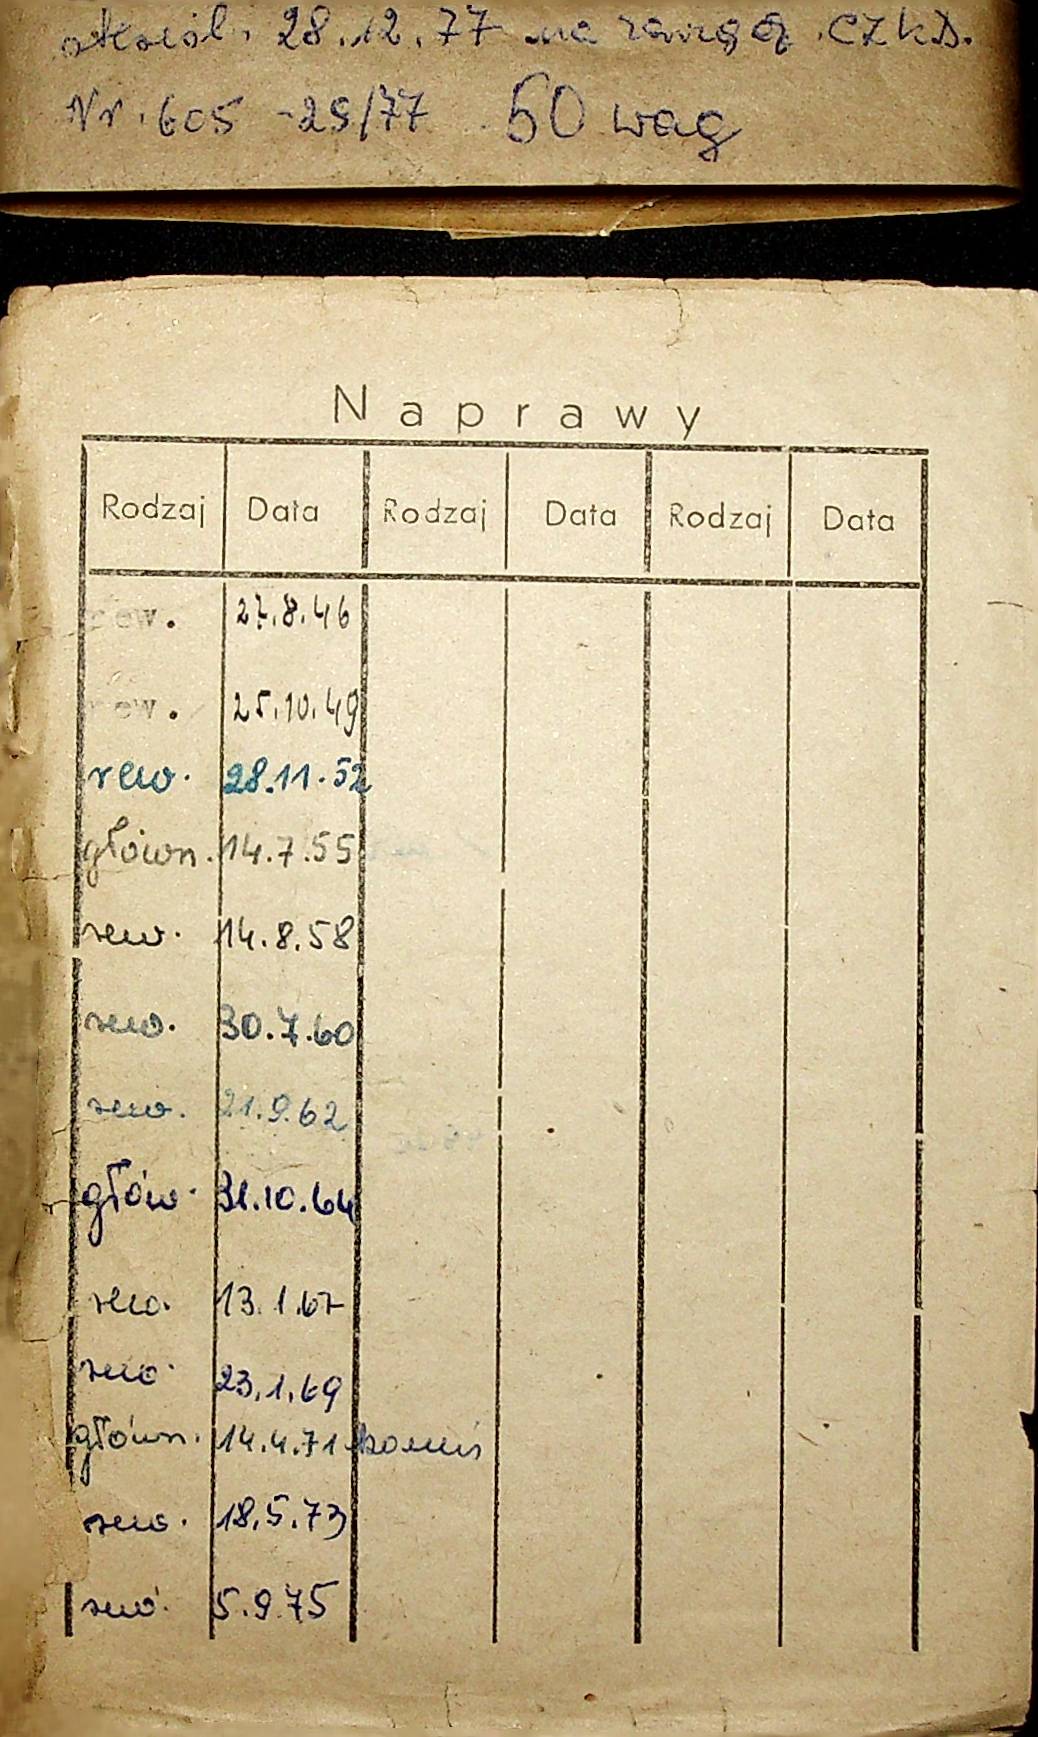 28.12.77 na CZKD.
Nr. 605 -25/77 50 wag
Naprawy
Rodzaj Data Rodzaj Data Rodzaj Data
rew. 27.8.46
rew. 25.10.49
rew. 28.11.52
główn. 14.7.55
rew. 14.8.58
rew. 30.7.60
rew. 21.9.62
głów. 31.10.64
rew. 13.1.67
rew. 23.1.69
główn. 14.4.71
rew. 18.5.73
rew. 5.9.75